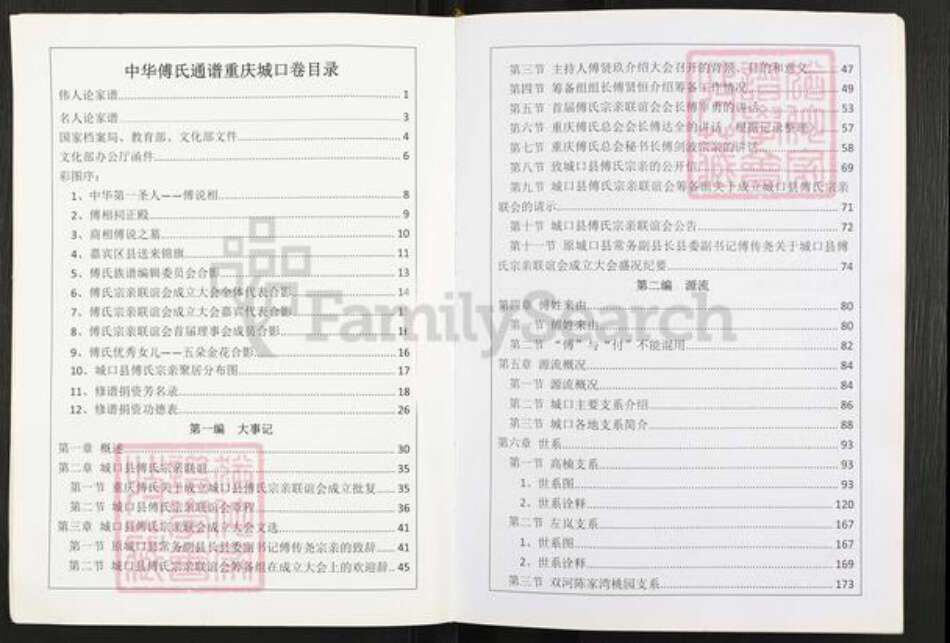 中华傅氏通谱重庆城口卷目录
伟人论家谱 1
名人论家谱 3
国家档案局、教育部、文化部文件 4
文化部办公厅函件 6
彩图序:
1、中华第一圣人——傅说相 8
2、傅相祠正殿 9
3、商相傅说之墓 10
4、嘉宾区县送来锦旗 11
5、傅氏族谱编辑委员会合影 13
6、傅氏宗亲联谊会成立大会全体代表合影 14
7、傅氏宗亲联谊会成立大会嘉宾代表合影
8、傅氏宗亲联谊会首届理事会成员合影
9、傅氏优秀女儿——五朵金花合影 16
10、城口县傅氏宗亲聚居分布图 17
11、修谱捐资芳名录 18
12、修谱捐资功德表 26
第一编 大事记
第一章 概述 30
第二章 城口县傅氏宗亲联谊 35
第一节 重庆傅氏关于成立城口县傅氏宗亲联谊会成立批复 35
第二节 城口县傅氏宗亲联谊会章程 36
第三章 城口县傅氏宗亲联会成立大会文选 41
第一节 原城口县常务副县长县委副书记傅传尧宗亲的致辞 41
第二节 城口县傅氏宗亲联谊会筹备组在成立大会上的欢迎辞 45
第三节 主持人傅贤玖介绍大会召开的背景、目的和意义 47
第四节 筹备组组长傅贤恒介绍筹备工作情况 49
第五节 首届傅氏宗亲联谊会会长傅 勇的讲话 53
第六节 重庆傅氏总会会长傅达全的讲话(根据记录整理) 57
第七节 重庆傅氏总会秘书长傅剑波宗亲的讲话 58
第八节 致城口县傅氏宗亲的公开信 69
第九节 城口县傅氏宗亲联谊会筹备组关于成立城口县傅氏宗亲
联会的请示 71
第十节 城口县傅氏宗亲联谊会公告 72
第十一节 原城口县常务副县长县委副书记傅传尧关于城口县傅
氏宗亲联谊会成立大会盛况纪要 74
第二编 源流
第四章 傅姓来由 80
第一节 傅姓来由 80
第二节 “傅”与“付”不能混用 82
第五章 源流概况 84
第一节 源流概况 84
第二节 城口主要支系介绍 86
第三节 城口各地支系简介 88
第六章 世系 93
第一节 高楠支系 93
1、世系图 93
2、世系诠释 120
第二节 左岚支系 167
1、世系图 167
2、世系诠释 169
第三节 双河陈家湾桃园支系 173
FamilySearch